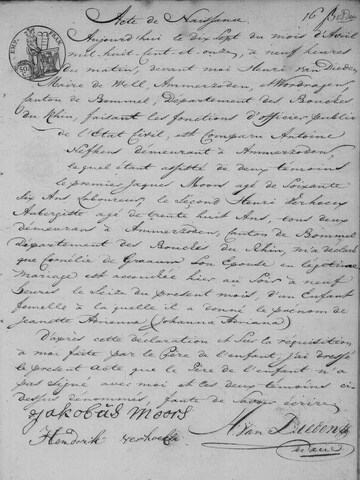 Acte de Naissance
Aujourd'hui le dix sept du mois d'Avril
mil huit cent et onze, à neuf heures
du matin, devant moi Henri van Dieden
Maire de Well, Ammerzoden, et Wordragen,
canton de Bommel, Département des Bouches
du Rhin, faisant les fonctions d'officier public
de l'Etat Civil, est comparu Antoine
demeurant à Ammerzoden,
lequel étant assisté de deux témoins
le premier Jaques Moors agé de Soixante
Six Ans Laboureur, le Second Henri Verhoeks
Aubergiste agé de trente huit Ans, tous deux
demeurans à Ammerzoden, canton de Bommel
Département des Bouches du Rhin, m'a declaré
que Cornélie de Graauw Son Epouse en légitime
mariage est accouchée hier au Soir à neuf
heures le Seize du présent mois, d'un Enfant
femelle à laquelle il a donné le prénom de
Jeanette Arianna (Johanna Ariaana)
D'après cette déclaration et Sur la requisition
a moi faite par le Père de l'enfant, j'ai dressé
le present Acte que le Père de l'enfant n'a
pas Signé avec moi et les deux témoins ci
dessus dénommés, faute de Savoir écrire
Jakobus Moors
Hendrik